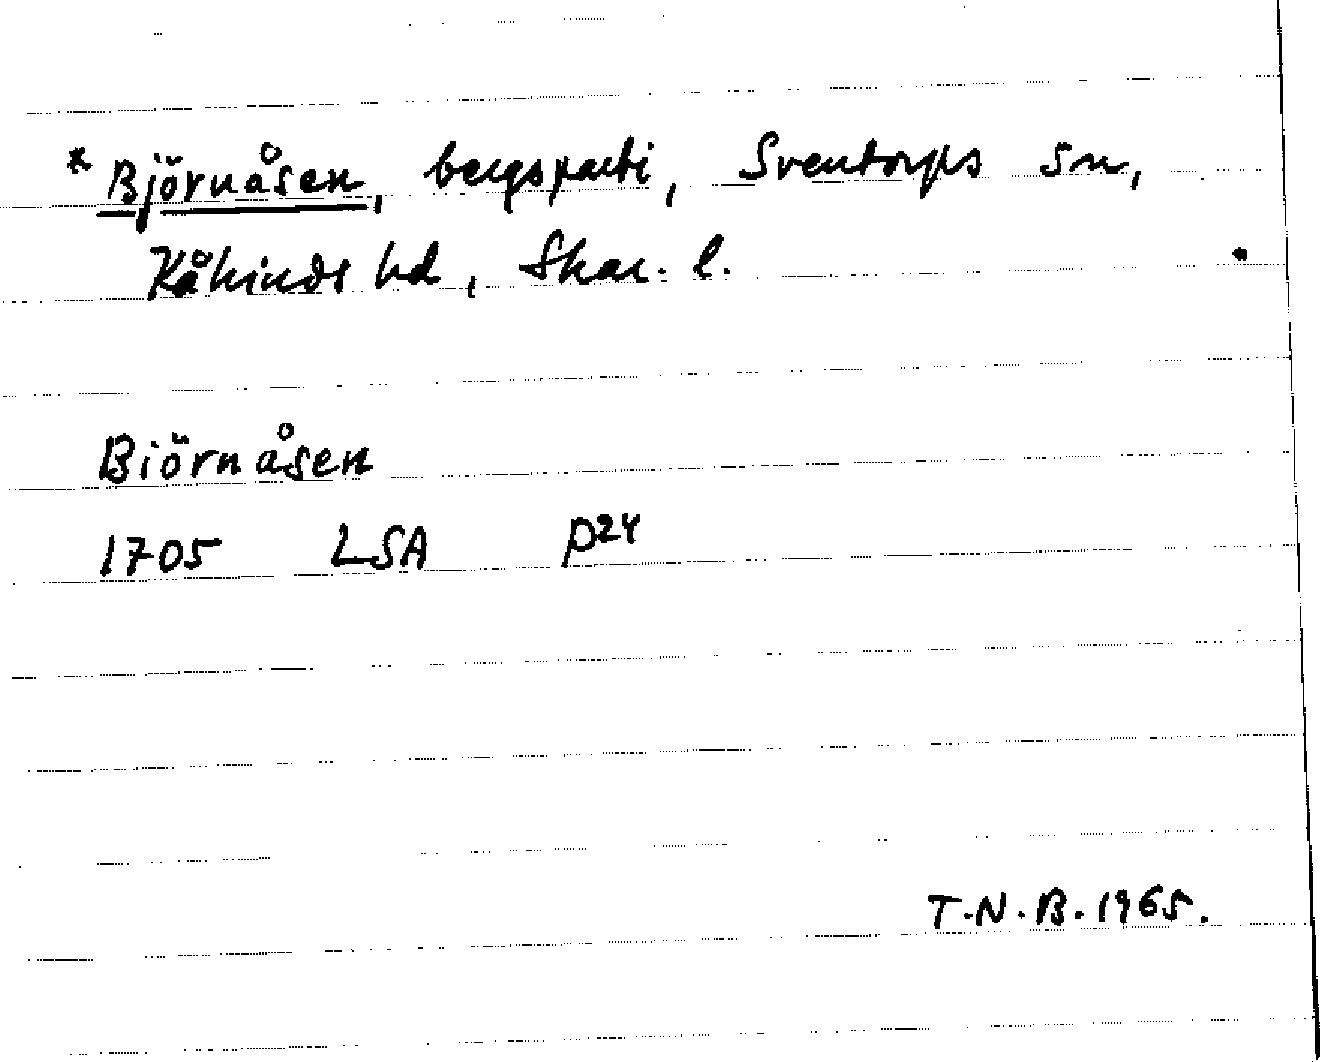 *Björnåsen, bergsparti, Sventorps sn,
Kåkinds hd, Skar. l.
Biörnåsen
1705 LSA P24
T.N.B. 1965.